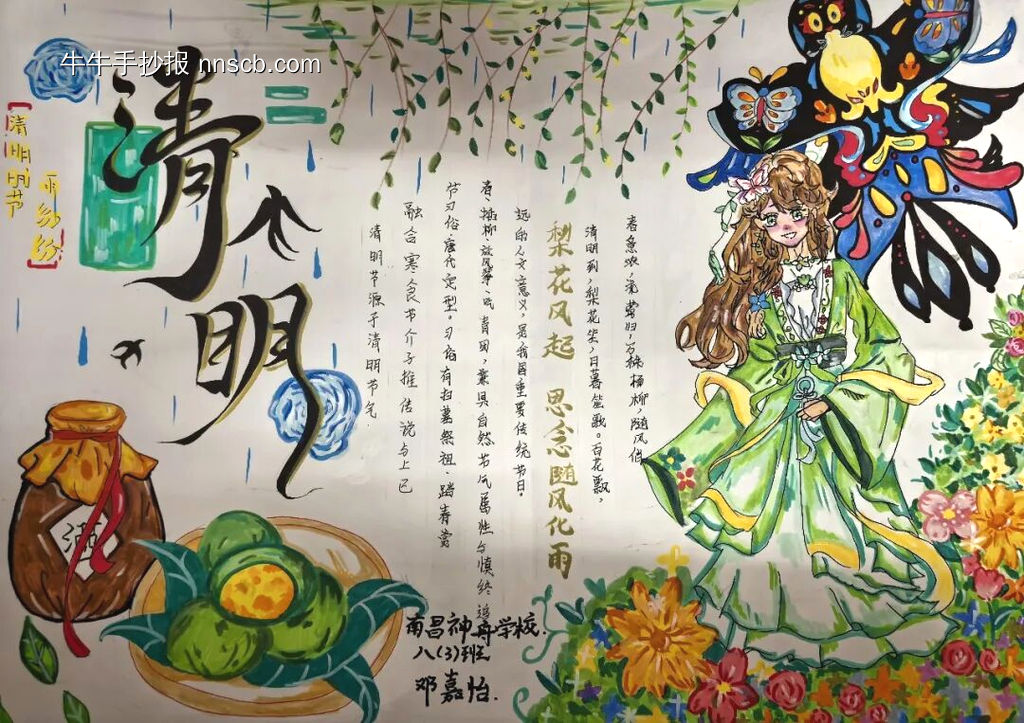 牛牛手抄报 nnscb.com
清明
清明时节
雨纷纷
酒
春意浓，莺归，万株杨柳，随风俏
清明到，梨花尘，日暮笙歌。百花飘，
梨花风起 思念随风化雨
清明节源于清明节气，
融合寒食节介子推传说与上巳
节习俗，唐代定型。习俗有扫墓祭祖、踏青赏
春、插柳、放风筝、吃青团，兼具自然节气属性与慎终追
远的人文意义，是我国重要传统节日。
南昌神舟学校.
八(3)班
邓嘉怡.